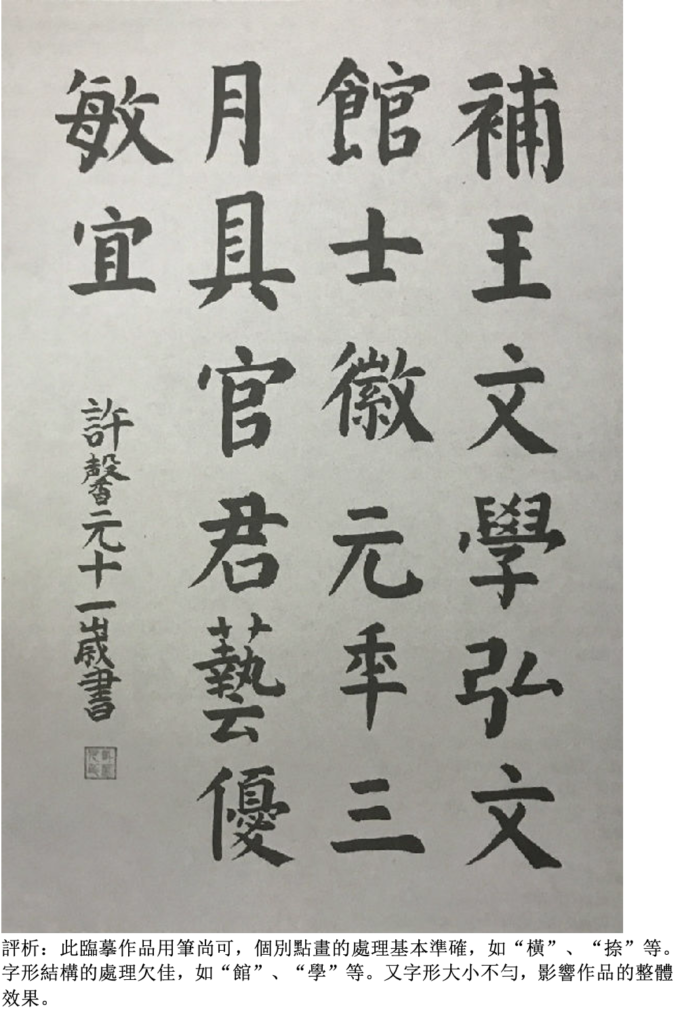 補王文學弘文
館士徽元年三
月具官君藝優
敏宜
許馨元十一歲書
評析：此臨摹作品用筆尚可，個別點畫的處理基本準確，如“橫”、“捺”等。
字形結構的處理欠佳，如“館”、“學”等。又字形大小不勻，影響作品的整體
效果。